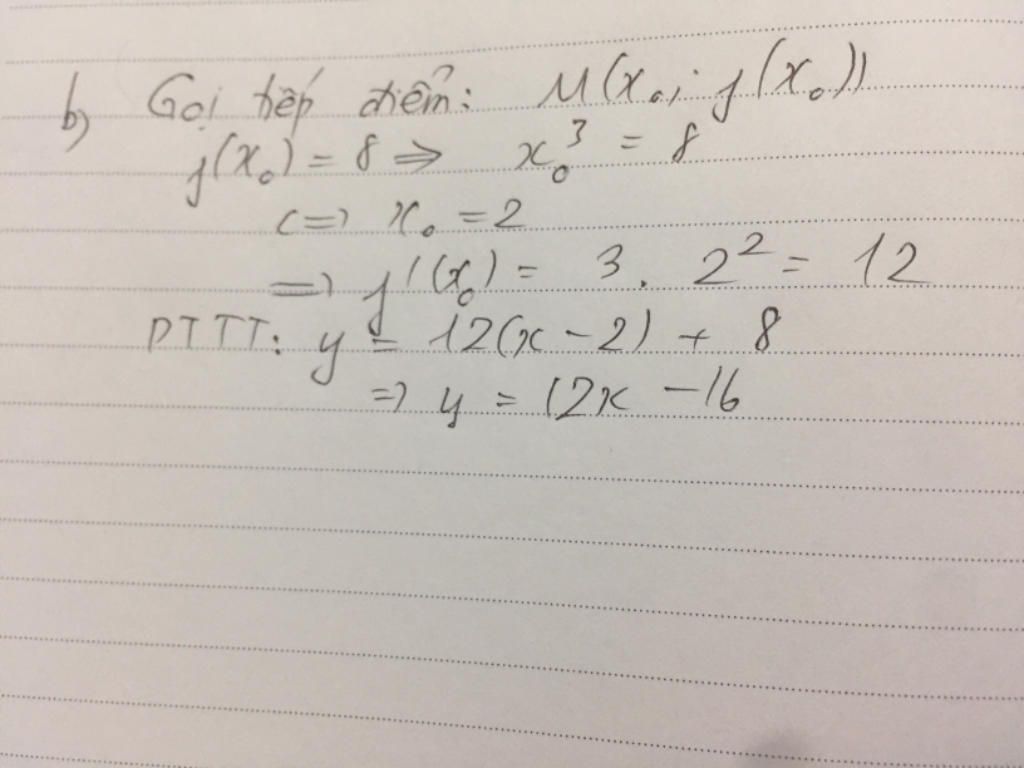 b) Gọi tiếp điểm: M(x₀; f(x₀))
f(x₀) = 8 => x₀³ = 8
<=> x₀ = 2
=> f'(x₀) = 3 . 2² = 12
PTTT: y = 12(x - 2) + 8
=> y = 12x - 16